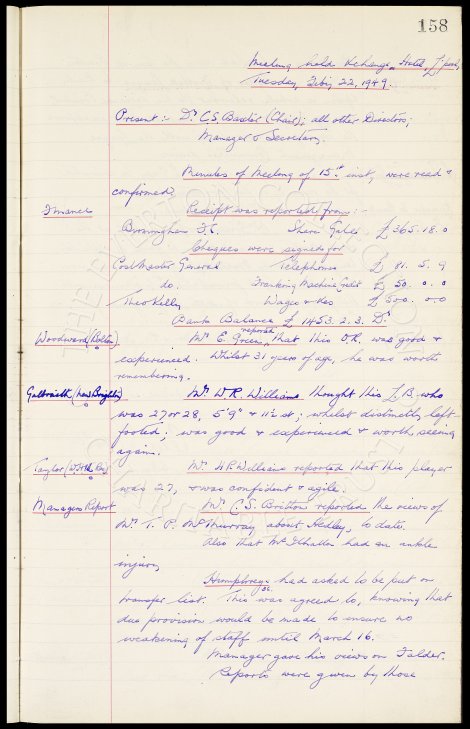 158
Meeting held Exchange Hotel, L'pool,
Tuesday, Feb'y 22, 1949.
Present :- Dr C.S. Baxter (Chair); all other Directors;
Manager & Secretary.
Minutes of Meeting of 15th inst, were read &
confirmed.
Finance
Receipt was reported from :-
Birmingham F.C. Share Gates £365.18.0
Cheques were signed for
Postmaster General Telephones £ 81. 5. 9
do. Franking Machine Credit £ 50. 0. 0
Theo Kelly Wages & Xes £500. 0.0
Bank Balance £1453. 2. 3. Dr
Woodward (Bolton)
Mr E. Green, reported that this O.R. was good &
experienced. Whilst 31 years of age, he was worth
remembering.
Galbraith (New Brighton)
Mr W.R. Williams thought this L.B. who
was 27 or 28, 5' 9" & 11½ st; whilst distinctly left
footed; was good & experienced & worth seeing
again.
Taylor
Mr W.R. Williams reported that this player
was 27, & was confident & agile.
Managers Report
Mr C.S. Britton reported the views of
Mr T. P. McMurray about Hedley, to date.
Also that McIlhatton had an ankle
injury
Humphreys had asked to be put on
transfer list. This was agreed to, knowing that
due provision would be made to ensure no
weakening of staff until March 16.
Manager gave his views on Falder.
Reports were given by those